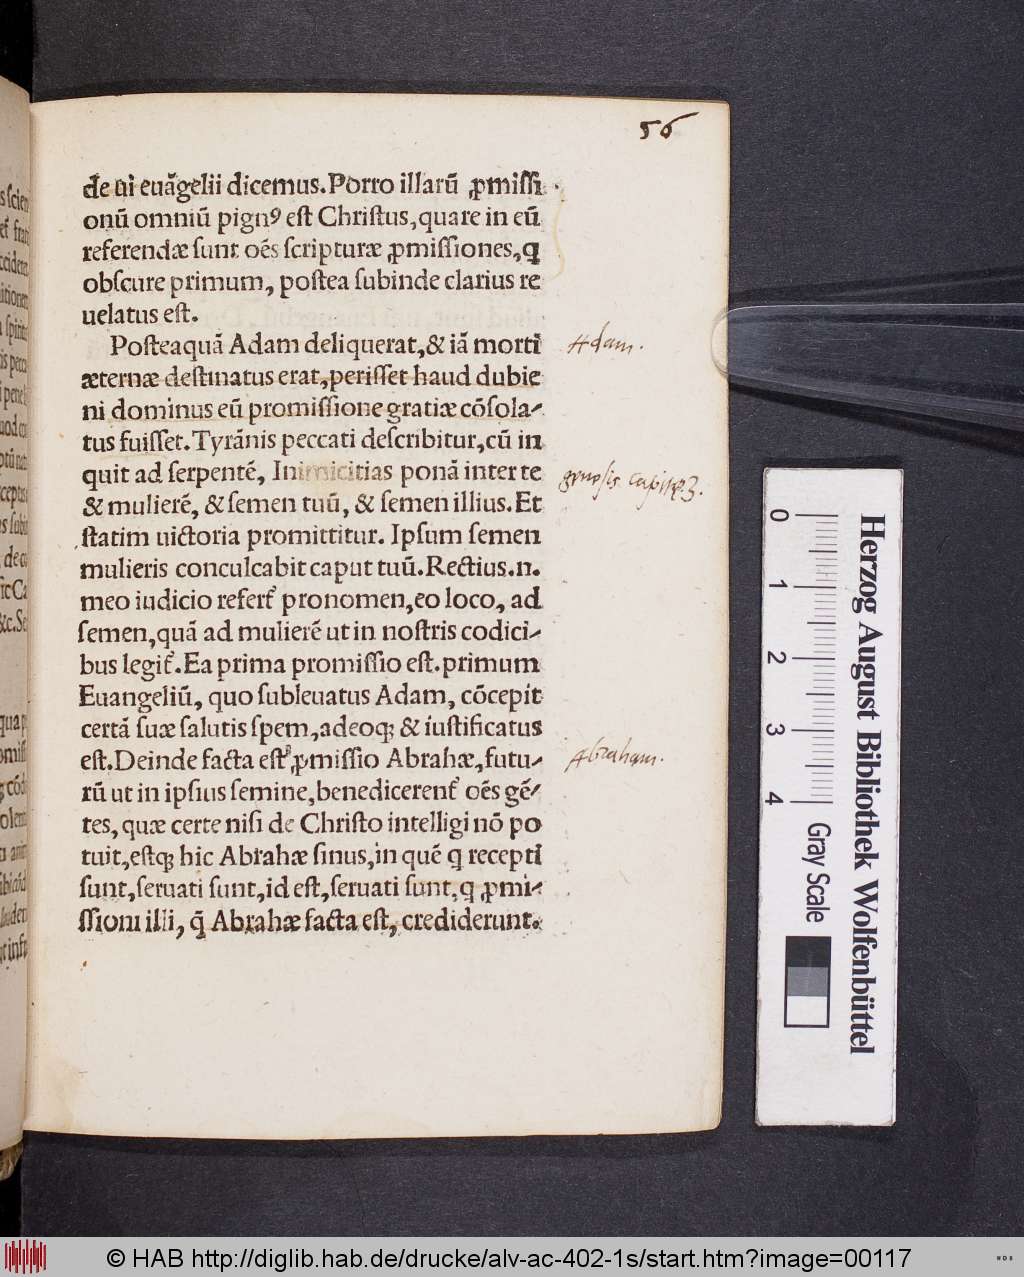 56
de ui euãgelii dicemus. Porro illarũ ꝓmissi
onũ omniũ pignꝰ est Christus, quare in eũ
referendæ sunt oẽs scripturæ ꝓmissiones, q
obscure primum, postea subinde clarius re
uelatus est.
Posteaquã Adam deliquerat, & iã morti
æternæ destinatus erat, perisset haud dubie
ni dominus eũ promissione gratiæ cõsola-
tus fuisset. Tyrãnis peccati describitur, cũ in
quit ad serpentẽ, Inimicitias ponã inter te
& mulierẽ, & semen tuũ, & semen illius. Et
statim uictoria promittitur. Ipsum semen
mulieris conculcabit caput tuũ. Rectius .n.
meo iudicio refert᷑ pronomen, eo loco, ad
semen, quã ad mulierẽ ut in nostris codici-
bus legit᷑. Ea prima promissio est. primum
Euangeliũ, quo subleuatus Adam, cõcepit
certã suæ salutis spem, adeoqꝫ & iustificatus
est. Deinde facta est ꝓmissio Abrahæ, futu-
rũ ut in ipsius semine, benedicerent᷑ oẽs gẽ-
tes, quæ certe nisi de Christo intelligi nõ po
tuit, estqꝫ hic Abrahæ sinus, in quẽ q recepti
sunt, seruati sunt, id est, seruati sunt, q ꝓmi-
ssioni illi, q̃ Abrahæ facta est, crediderunt.
Adam.
genesis capite 3.
Abraham.
0 1 2 3 4
Herzog August Bibliothek Wolfenbüttel
Gray Scale
© HAB http://diglib.hab.de/drucke/alv-ac-402-1s/start.htm?image=00117